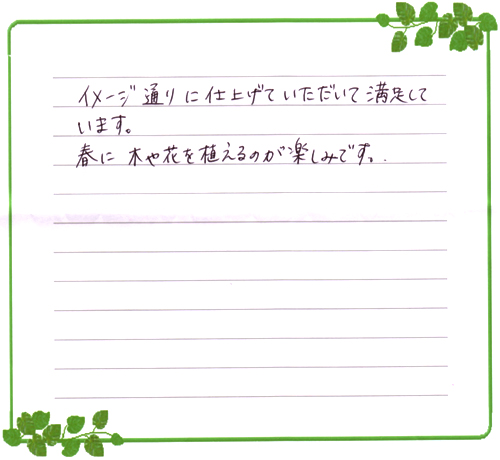 イメージ通りに仕上げていただいて満足して
います。
春に木や花を植えるのが楽しみです。